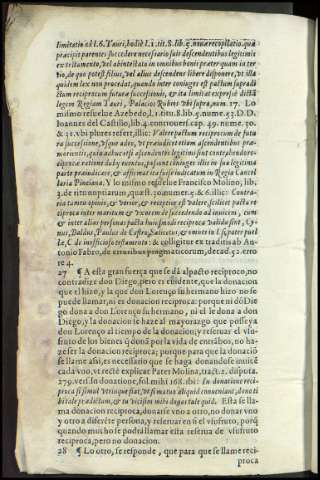 limitatio ad l.6. Tauri, hodie l.1. tit.8. lib.5. nouæ recopilatio. quæ
præcipit parentes succedere necessario suis descendentibus legitimis
ex testamento, vel ab intestato in omnibus bonis præter quam in ter
tio, de quo potest filius, vel alius descendens libere disponere, vt illa
quidem lex non procedat, quando inter coniuges est pactum supradi
ctum reciprocum futuræ successionis, & ita limitat expresse dictã
legem Regiam Tauri, Palacios Rubios vbi supra, num. 17. Lo
mismo resuelue Azebedo, l.1. tit.8. lib.5. nume. 53. D.D.
Ioannes del Castillo, lib.4. controuers. cap. 49. nume. 30.
& 31. vbi plures refert, illic: Valere pactum reciprocum de futu
ra successione, vsque adeo, vt præiudicet etiam ascendentibus præ-
morientis, quia adhuc etsi ascendentes legitimi sint contrahendo re-
ciprocæ ratione dubij euentus, possunt coniuges illic in sua legitima
parte præiudicare, & affirmat ita fuisse iudicatum in Regia Cancel
laria Pinciana. Y lo mismo resuelue Francisco Molino, lib.
3. de ritu nuptiarum, quæst. 30. numer. 5. & 6. illic: Contra
ria tamen opinio, & verior, & receptior est valere, scilicet pacta re
ciproca inter maritum & vxorem de succedendo ad inuicem, cum
& inter alias personas pacta huiusmodi reciproca valida sint, Cy-
nus, Baldus, Paulus de Castro, Salicetus, & omnes in l. si pater puel
læ, C. de inofficioso testamento: & colligitur ex traditis ab An-
tonio Fabro, de erroribus pragmaticorum, decad. 52. erro
re 4.
27 ¶ A esta gran fuerça que se dà al pacto reciproco, no
contradize don Diego, pero es euidente, que la donacion
que el hizo, y la que don Lorenço su hermano hizo no se
puede llamar, ni es donacion reciproca: porque ni dõ Die
go dona a don Lorenço su hermano, ni el le dona a don
Diego, y la donacion se haze al mayorazgo que posseìa
don Lorenço al tiempo de la donacion; y reseruar el vsu-
fruto de los bienes q̃ donò por la vida de entrãbos, no ha-
ze ser la donacion reciproca; porque para que la donaciõ
se llame assi, es necessario que se haga donandose inuicẽ
cada vno, vt recte explicat Pater Molina, tract. 2. disputa.
279. vers. In donatione, fol. mihi 168. ibi: In donatione reci-
proca si simul verè que fiat, vt si mutuo aliquid conueniant, donati
bi tale prædium, & tu vicissim mihi dones tale quid. Esta se lla-
ma donacion reciproca, donarse vno a otro, no donar vno
y otro a diferẽte persona, y reseruar en sì el vsufruto, porq̃
quando mucho se podrà llamar esta reserua de vsufruto
reciproca, pero no donacion.
28 ¶ Lo otro, se responde, que para que se llame reci-
proca